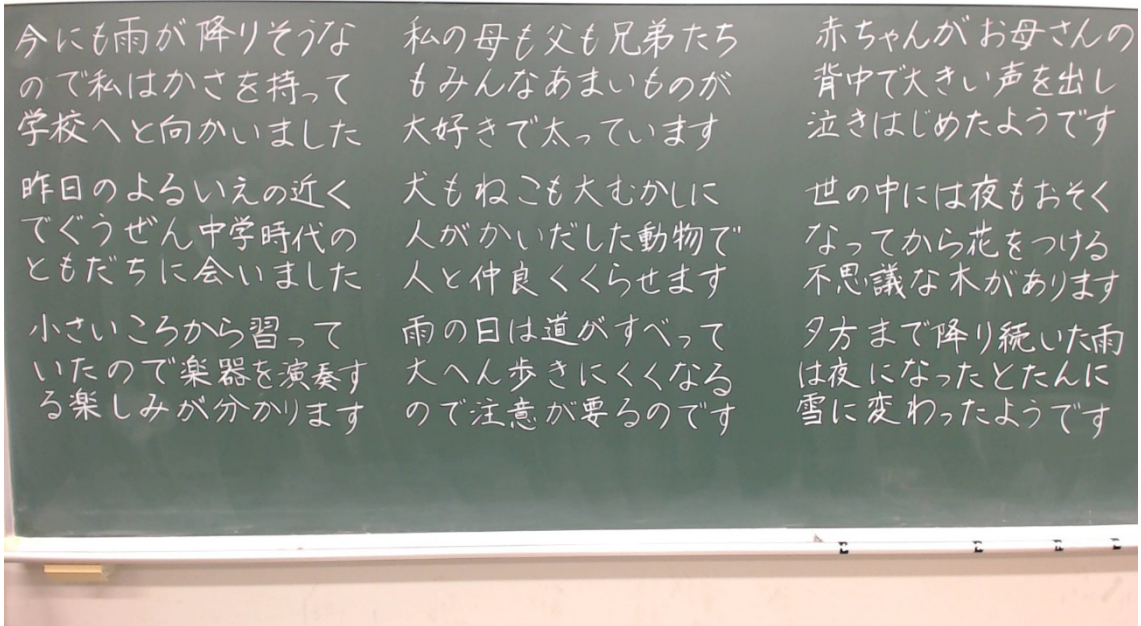 今にも雨が降りそうな
ので私はかさを持って
学校へと向かいました
昨日のよるいえの近く
でぐうぜん中学時代の
ともだちに会いました
小さいころから習って
いたので楽器を演奏す
る楽しみが分かります
私の母も父も兄弟たち
もみんなあまいものが
大好きで太っています
犬もねこも大むかしに
人がかいだした動物で
人と仲良くくらせます
雨の日は道がすべって
大へん歩きにくくなる
ので注意が要るのです
赤ちゃんがお母さんの
背中で大きい声を出し
泣きはじめたようです
世の中には夜もおそく
なってから花をつける
不思議な木があります
夕方まで降り続いた雨
は夜になったとたんに
雪に変わったようです